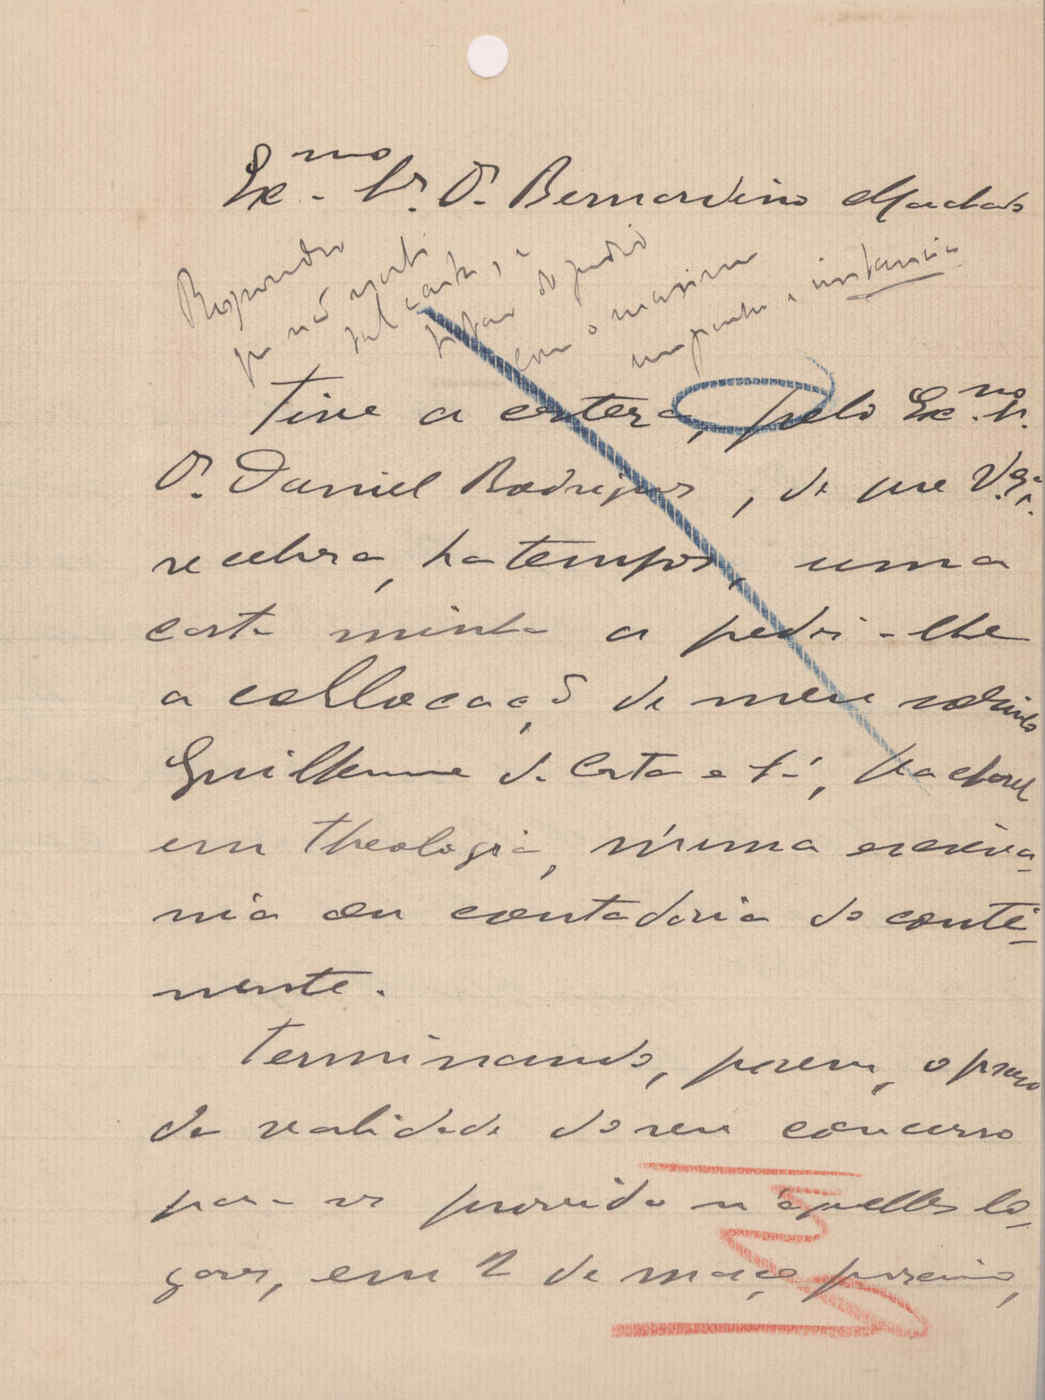 Ex.mo Sr. Dr. Bernardino Machado
Responder
que não
tal carta, e
do pedido
com o maximo
empenho e instancia
Tive a certeza, pelo Ex.mo Sr.
Dr. Daniel Rodrigues, de que V. Ex.ª
recebera, ha tempos, uma
carta minha a pedir-lhe
a collocação de meu sobrinho
Guilherme da Costa e Sá, bacharel
em theologia, n'uma escriva-
nia ou contadoria do conti-
nente.
Terminando, porem, o praso
da validade do seu concurso
para ser provido n'aquelles lo-
gares, em 2 de março proximo,